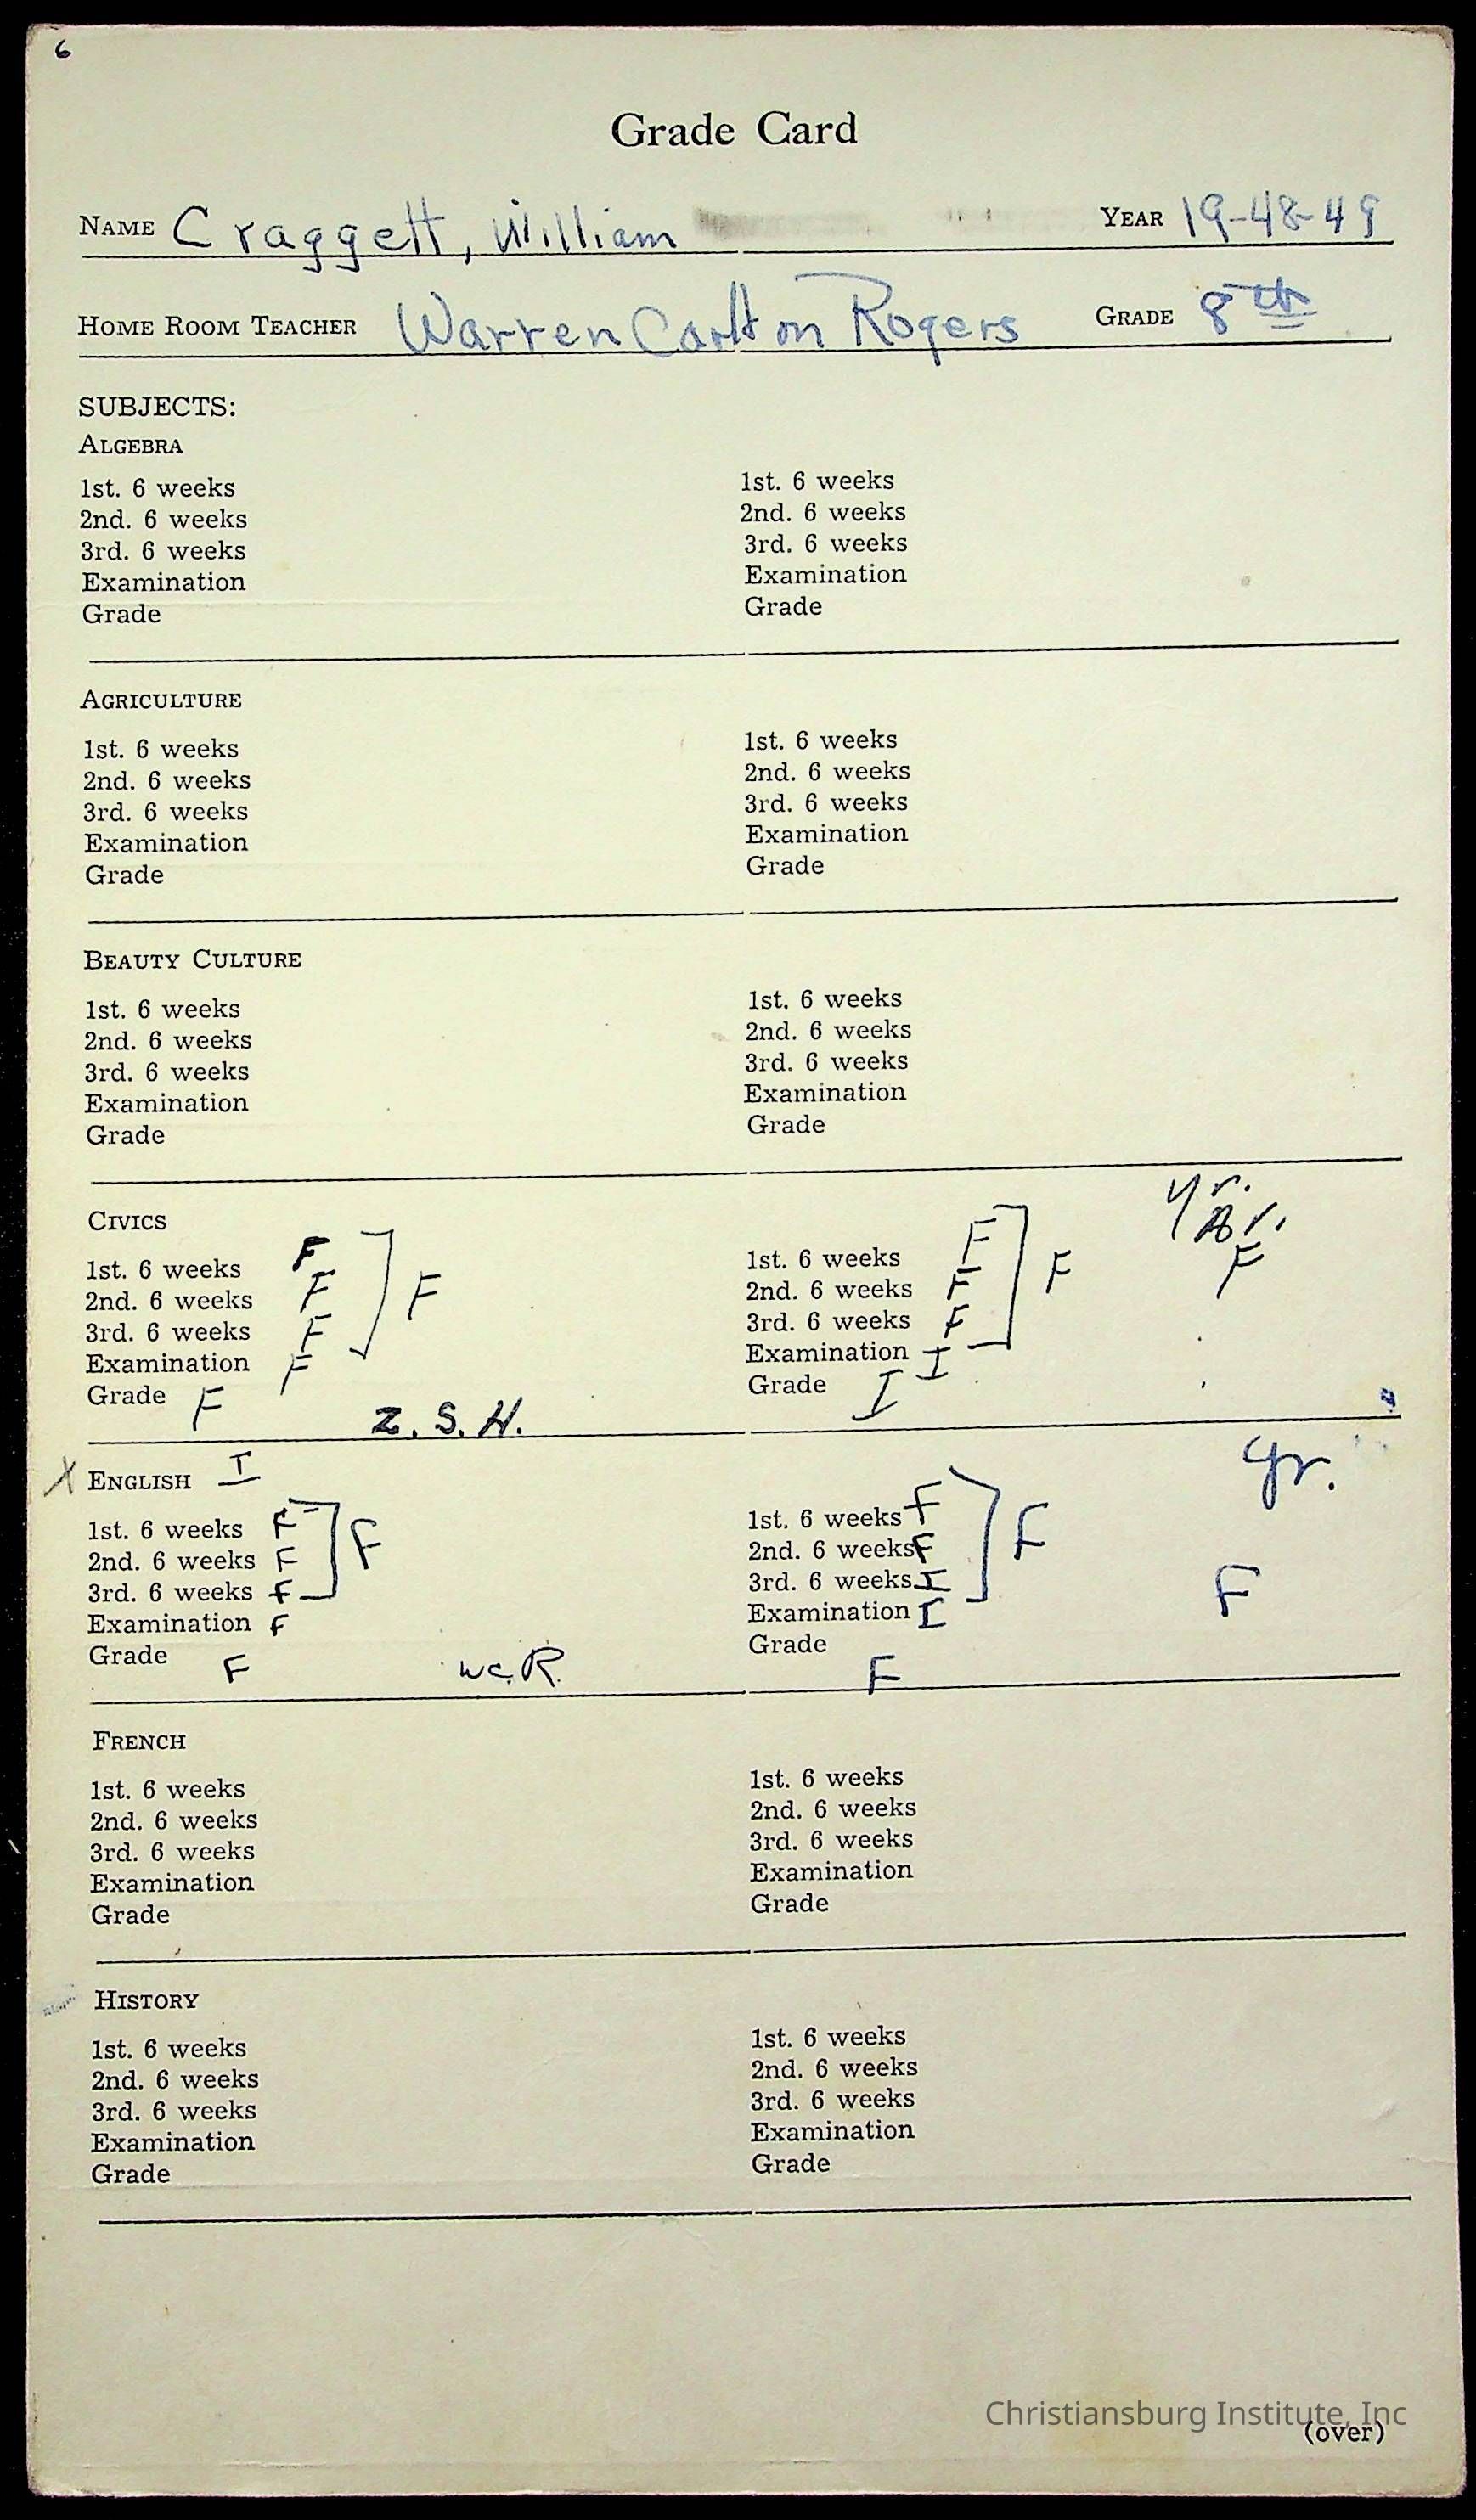 6
Grade Card
NAME Craggett, William YEAR 19-48-49
HOME ROOM TEACHER Warren Carlton Rogers GRADE 8th
SUBJECTS:
ALGEBRA
1st. 6 weeks 1st. 6 weeks
2nd. 6 weeks 2nd. 6 weeks
3rd. 6 weeks 3rd. 6 weeks
Examination Examination
Grade Grade
AGRICULTURE
1st. 6 weeks 1st. 6 weeks
2nd. 6 weeks 2nd. 6 weeks
3rd. 6 weeks 3rd. 6 weeks
Examination Examination
Grade Grade
BEAUTY CULTURE
1st. 6 weeks 1st. 6 weeks
2nd. 6 weeks 2nd. 6 weeks
3rd. 6 weeks 3rd. 6 weeks
Examination Examination
Grade Grade
Yr.
CIVICS Av.
1st. 6 weeks F 1st. 6 weeks F F
2nd. 6 weeks F F 2nd. 6 weeks F F
3rd. 6 weeks F 3rd. 6 weeks F
Examination F Examination I
Grade F Grade I
Z. S. H.
X ENGLISH I Yr.
1st. 6 weeks F F 1st. 6 weeks F F
2nd. 6 weeks F 2nd. 6 weeks F
3rd. 6 weeks F 3rd. 6 weeks I F
Examination F Examination I
Grade F W.C.R. Grade F
FRENCH
1st. 6 weeks 1st. 6 weeks
2nd. 6 weeks 2nd. 6 weeks
3rd. 6 weeks 3rd. 6 weeks
Examination Examination
Grade Grade
HISTORY
1st. 6 weeks 1st. 6 weeks
2nd. 6 weeks 2nd. 6 weeks
3rd. 6 weeks 3rd. 6 weeks
Examination Examination
Grade Grade
Christiansburg Institute, Inc
(over)